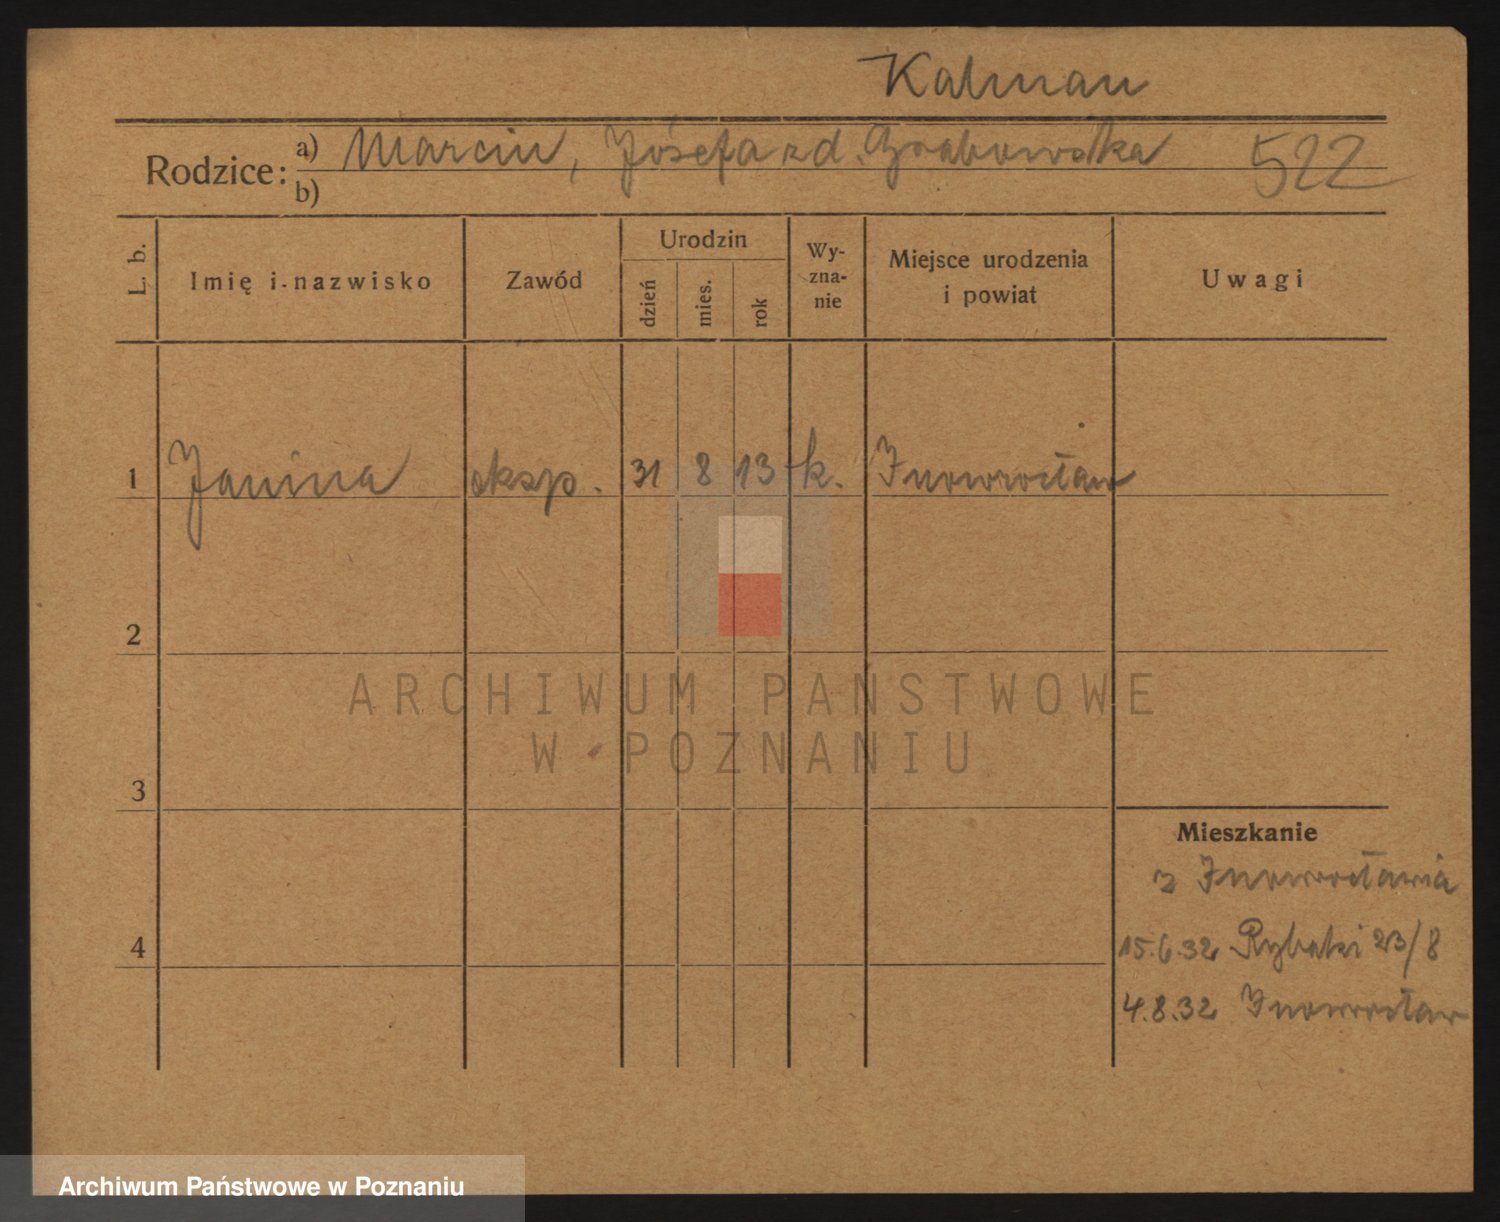 Kalman
Rodzice: a) Marcin, Józefa z d. Grabowska 522
b)
L. b. Imię i nazwisko Zawód Urodzin dzień mies. rok Wyznanie Miejsce urodzenia i powiat Uwagi
1 Janina eksp. 31 8 13 k. Inowrocław
2
ARCHIWUM PANSTWOWE
W POZNANIU
3
Mieszkanie
z Inowrocławia
4
15.6.32 Rybaki 23/8
4.8.32 Inowrocław
Archiwum Państwowe w Poznaniu